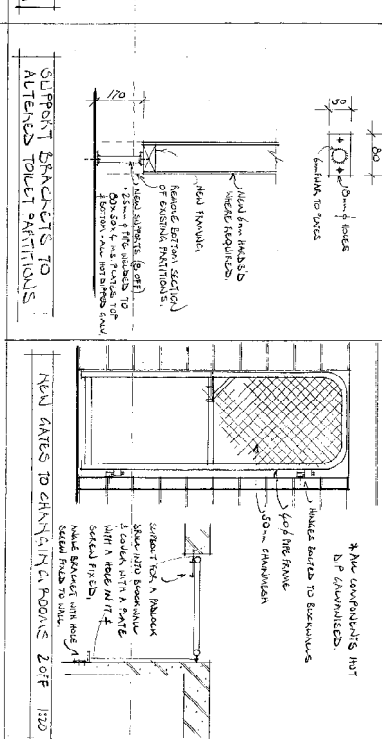 80
50
8mm ϕ HOLES
6mm HAR TO PLATES
170
NEW 6mm HARDB'D
WHERE REQUIRED.
NEW FRAMING.
REMOVE BOTTOM SECTION
OF EXISTING PARTITIONS.
NEW SUPPORTS (8 OFF)
25mm ϕ PIPE WELDED TO
80x50x4 M.S. PLATES TOP
& BOTTOM - ALL HOT DIPPED GALV.
SUPPORT BRACKETS TO
ALTERED TOILET PARTITIONS
* ALL COMPONENTS HOT
DIP GALVANISED.
HINGES BOLTED TO BLOCKWALLS
40 ϕ PIPE FRAME
50mm CHAINMESH
SLIPBOLT FOR A PADLOCK
INTO BLOCKWALL
& COVER WITH A PLATE
WITH A HOLE IN IT &
SCREW FIXED,
ANGLE BRACKET WITH HOLE
SCREW FIXED TO WALL.
NEW GATES TO CHANGING ROOMS 2 OFF 1:20